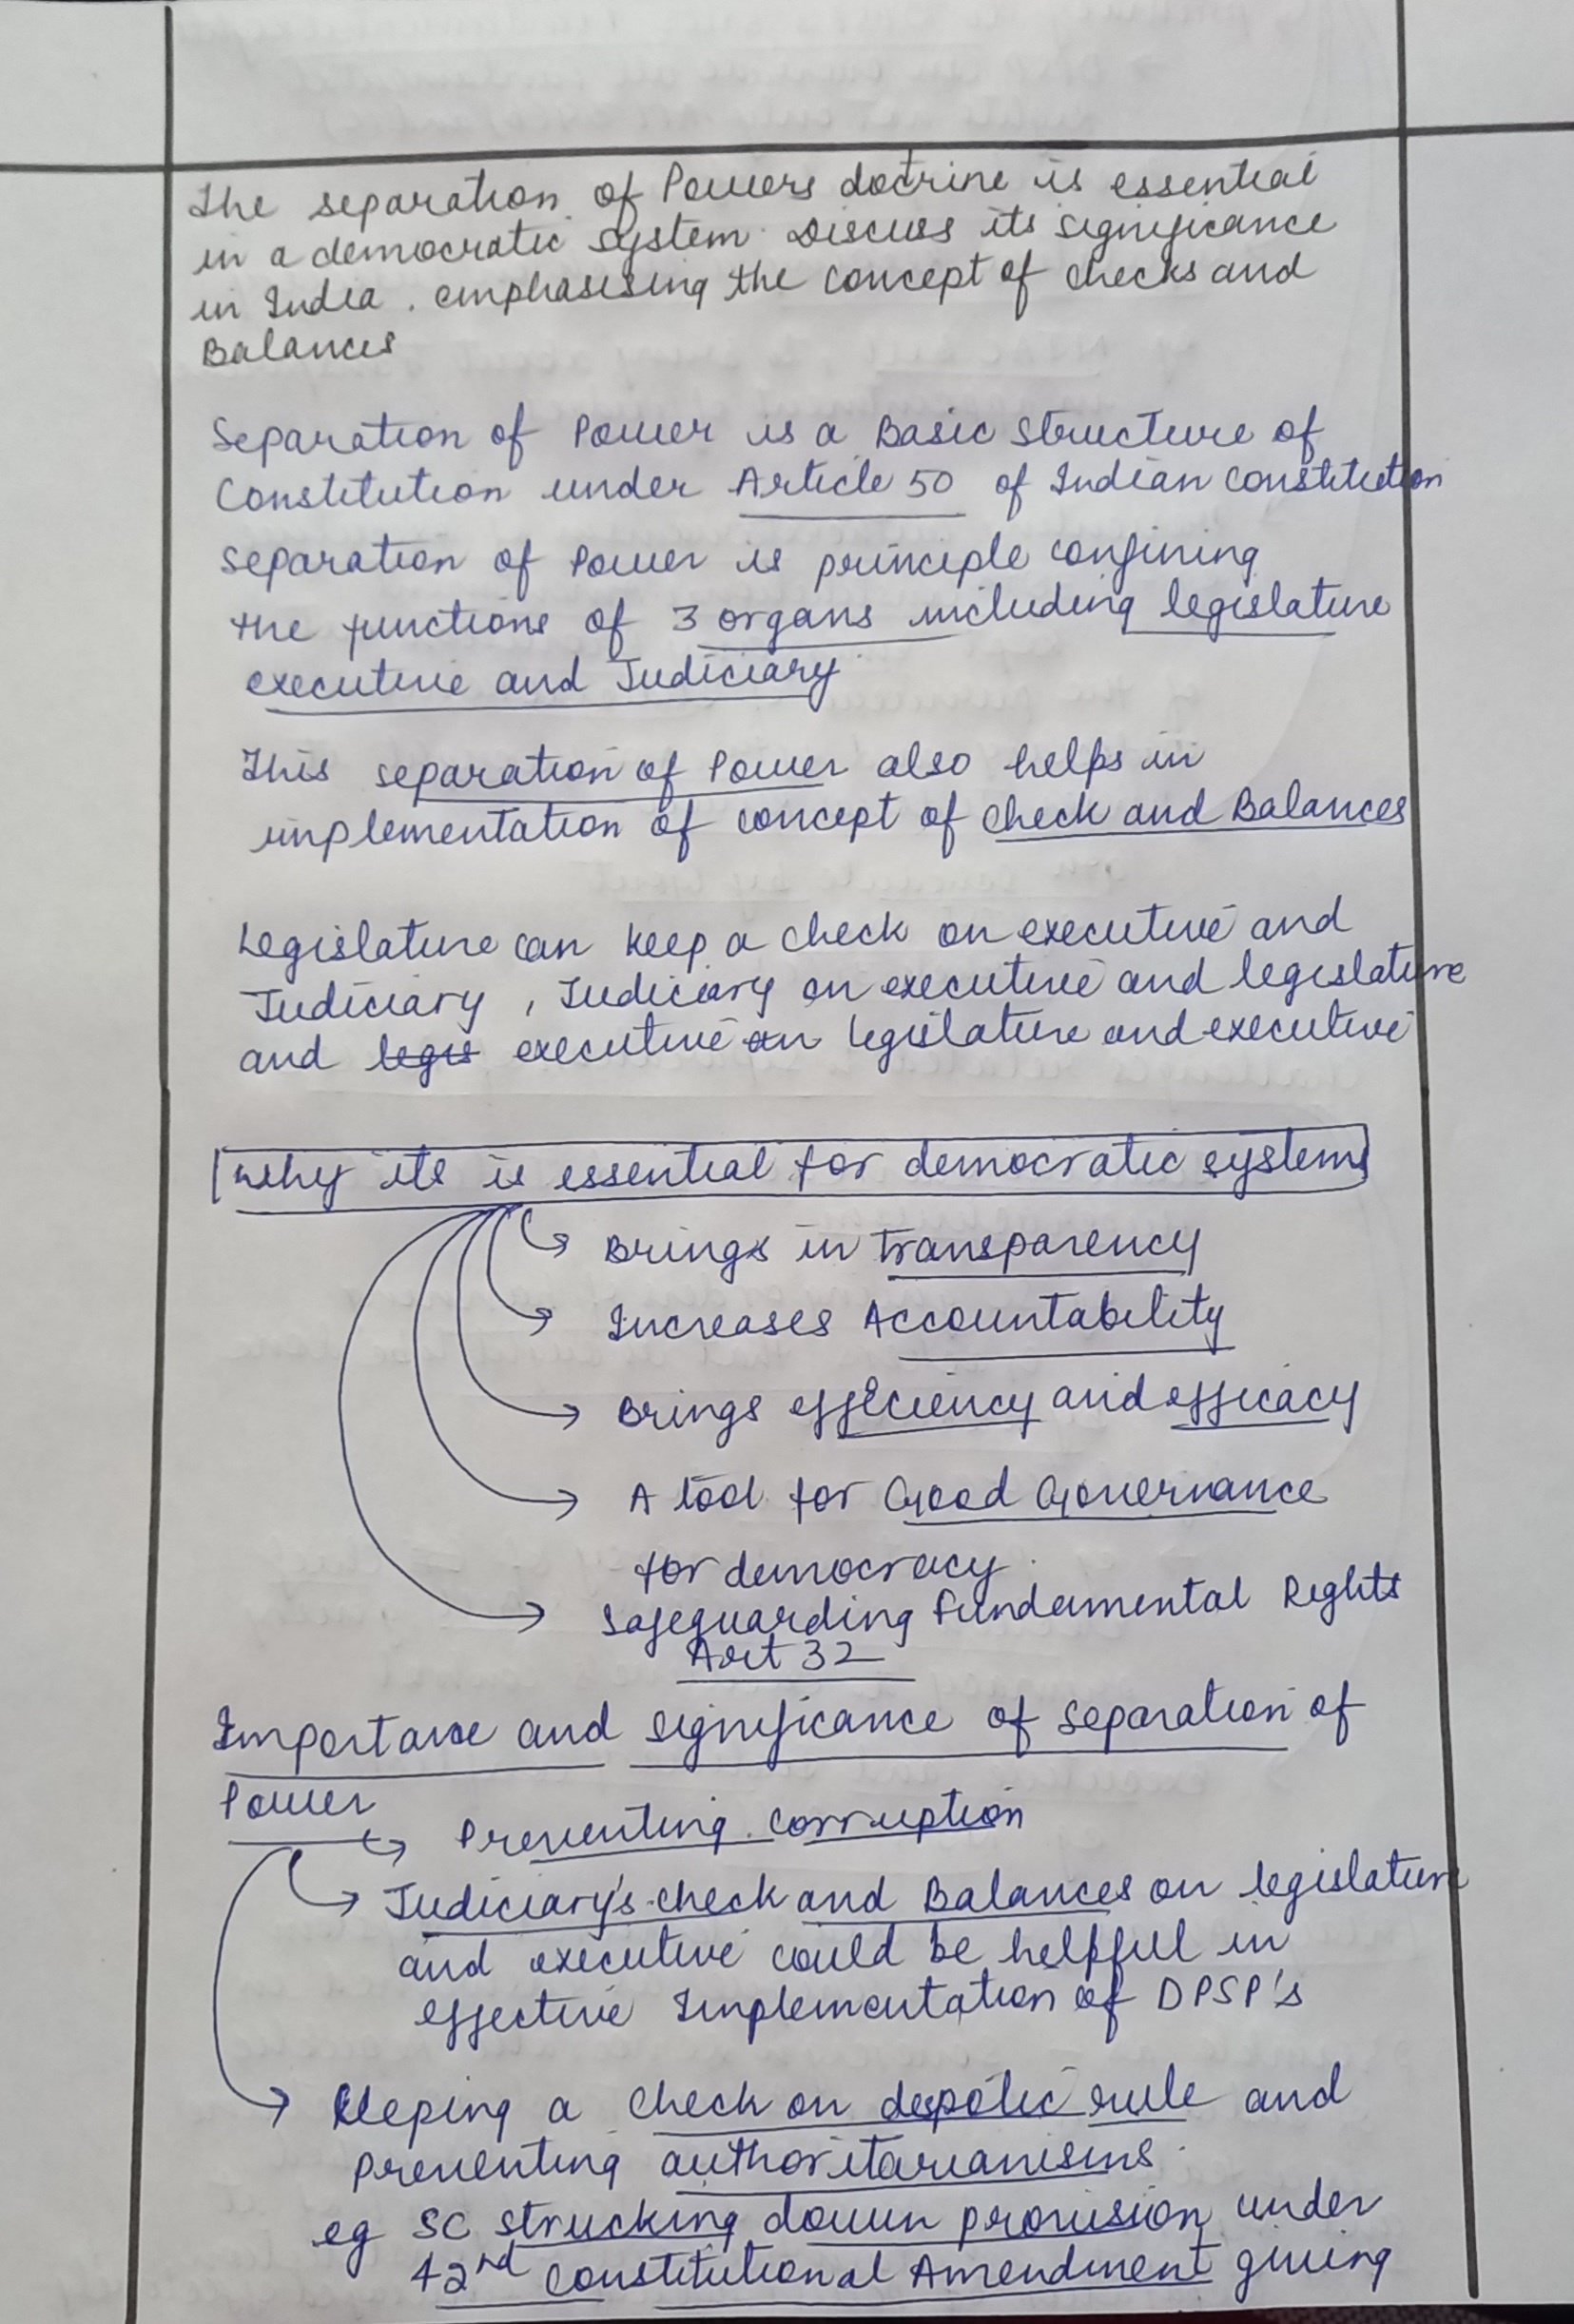 The separation of Powers doctrine is essential
in a democratic system. Discuss its significance
in India. emphasising the concept of checks and
Balances
Separation of Power is a Basic structure of
Constitution under Article 50 of Indian constitution
separation of Power is principle confining
the functions of 3 organs including legislature
executive and Judiciary
This separation of Power also helps in
implementation of concept of check and Balances
Legislature can keep a check on executive and
Judiciary, Judiciary on executive and legislature
and legis executive on legislature and executive
why its is essential for democratic systems
Brings in transparency
Increases Accountability
Brings efficiency and efficacy
A tool for Good Governance
for democracy.
Safeguarding Fundamental Rights
Art 32
Importance and significance of separation of
Power
Preventing corruption
Judiciary's check and Balances on legislature
and executive could be helpful in
effective Implementation of DPSP's
Keeping a check on despotic rule and
preventing authoritarianisms.
eg SC strucking down provision under
42nd Constitutional Amendment giving